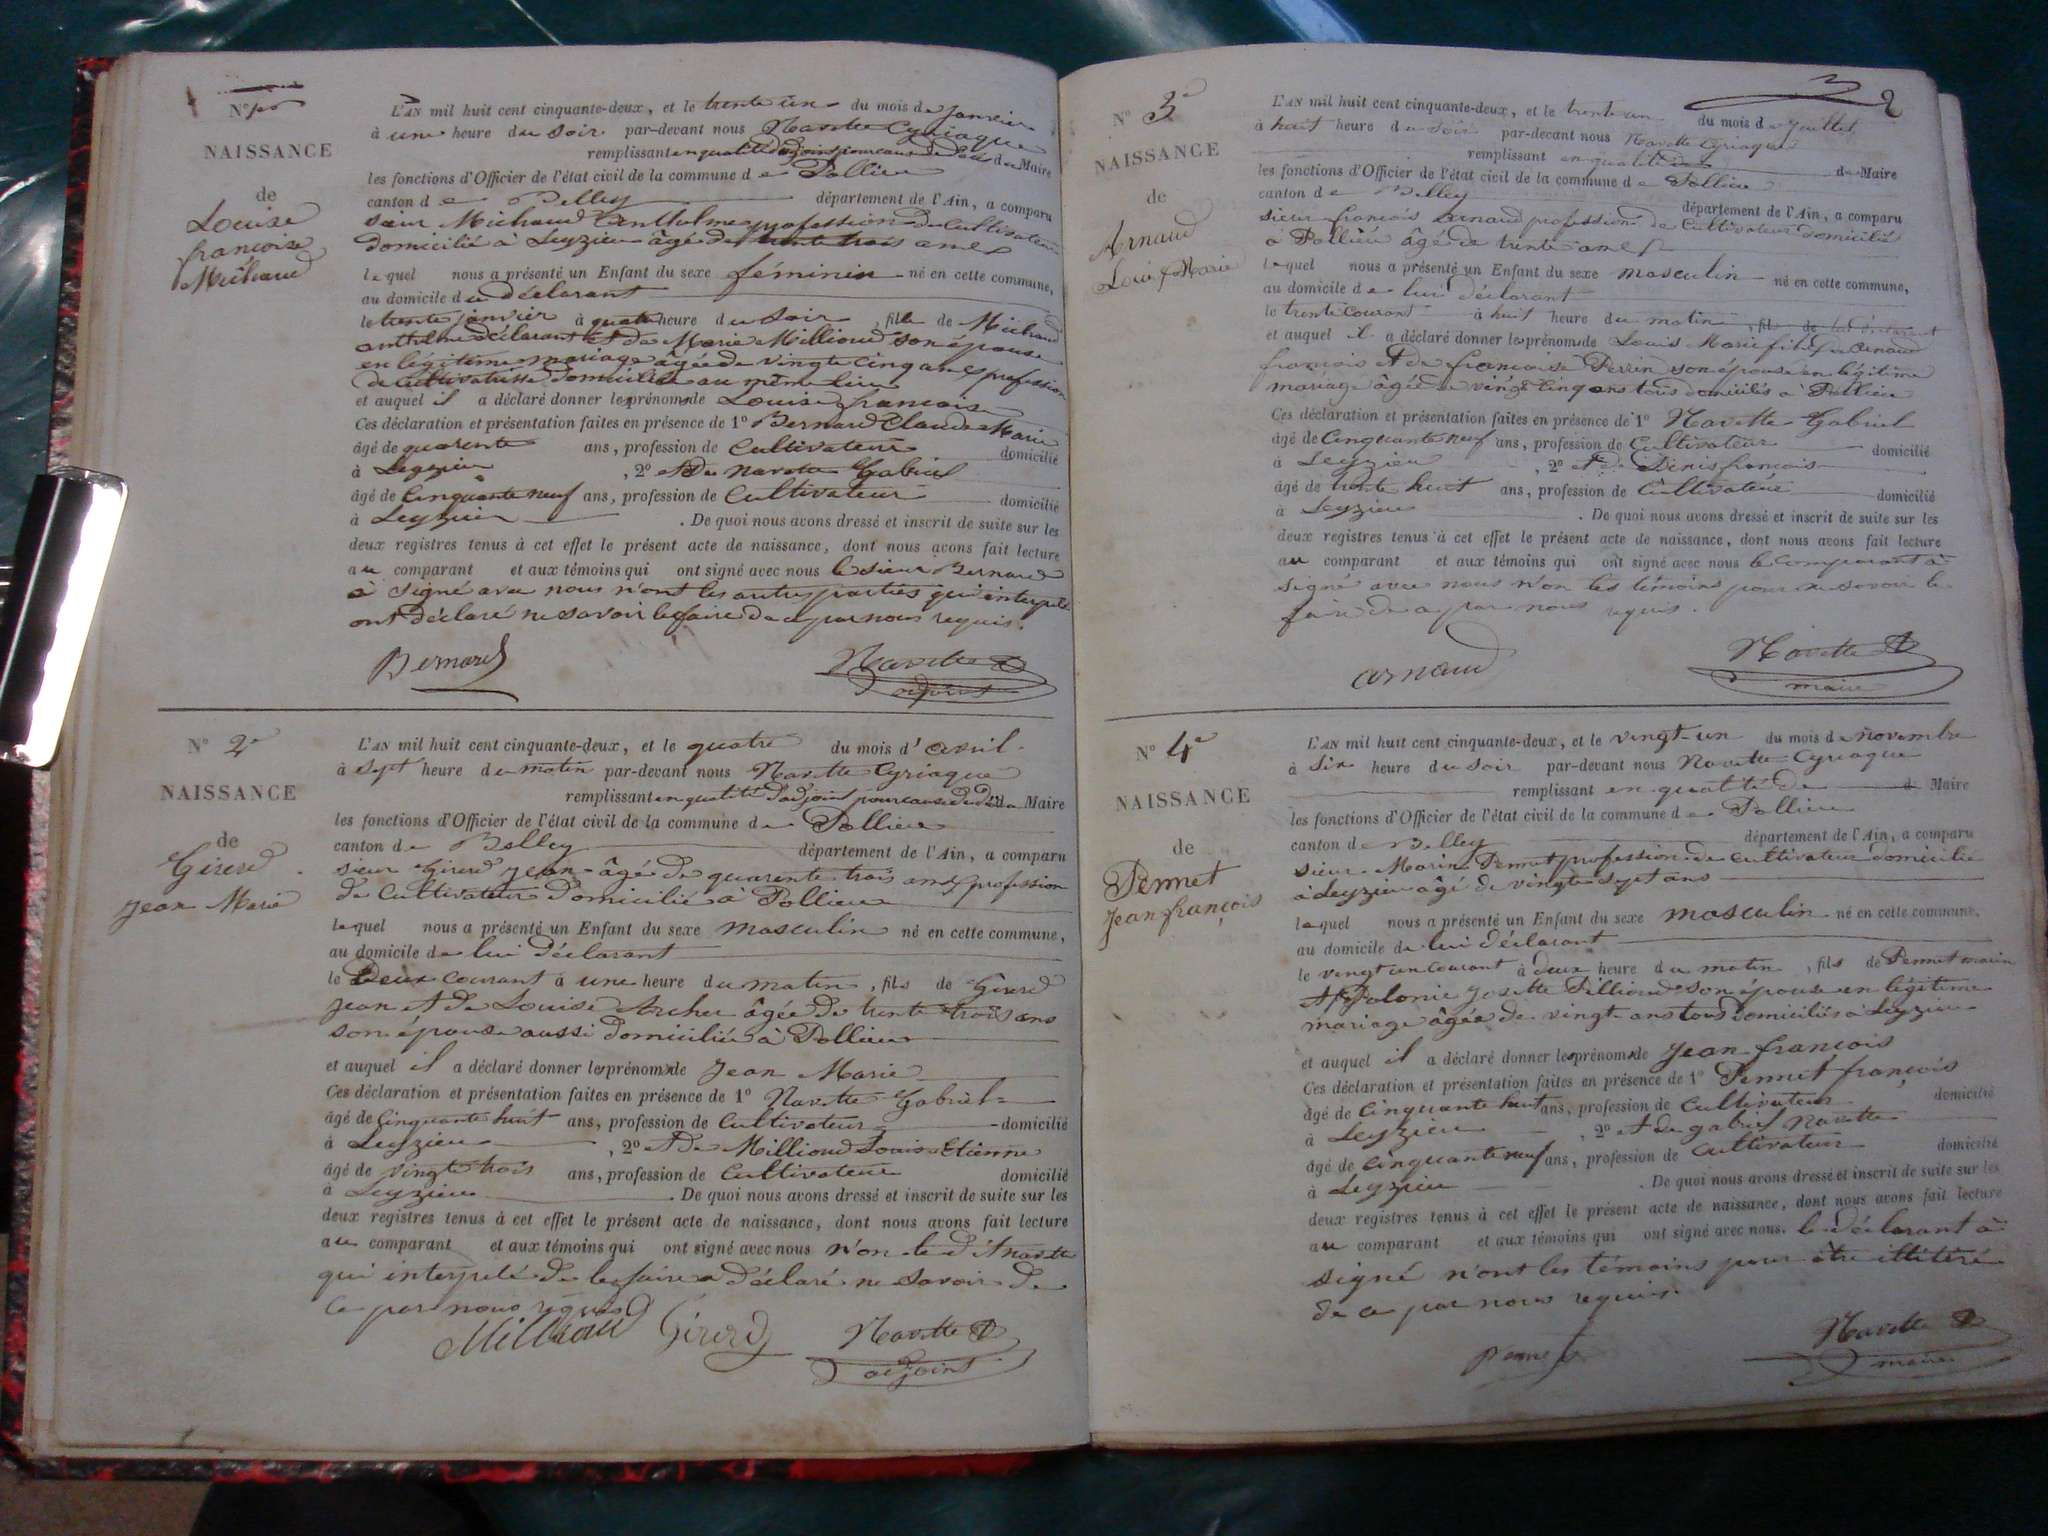 NAISSANCE
de
Louise
françoise
Michaud
L'AN mil huit cent cinquante-deux, et le trente un du mois de Janvier
à une heure du soir par-devant nous Navette Cyriaque
remplissant en qualité d'adjoint pour cause de du Maire
les fonctions d'Officier de l'état civil de la commune de Pollieu
canton de Belley département de l'Ain, a comparu
sieur Michaud Anthelme profession de Cultivateur
domicilié à Leyzieu âgé de trente trois ans
lequel nous a présenté un Enfant du sexe féminin né en cette commune,
au domicile du déclarant
le trente janvier à quatre heure du soir, fille de Michaud
anthelme déclarant et de Marie Millioud son épouse
en légitime mariage âgée de vingte cinq ans profession
de Cultivatrisse domiciliée au même lieu
et auquel il a déclaré donner les prénoms de Louise françoise
Ces déclaration et présentation faites en présence de 1° Bernard Claude Marie
âgé de quarente ans, profession de Cultivateur domicilié
à Leyzieu, 2° et de navette Gabriel
âgé de Cinquante neuf ans, profession de Cultivateur domicilié
à Leyzieu. De quoi nous avons dressé et inscrit de suite sur les
deux registres tenus à cet effet le présent acte de naissance, dont nous avons fait lecture
au comparant et aux témoins qui ont signé avec nous le sieur Bernard
à signé avec nous n'ont les autres parties qui interpelé
ont déclaré ne savoir le faire de ce par nous requis.
Bernard
Navette
adjoint
N° 2e
NAISSANCE
de
Girerd
Jean Marie
L'AN mil huit cent cinquante-deux, et le quatre du mois d'avril
à sept heure du matin par-devant nous Navette Cyriaque
remplissant en qualité d'adjoint pour cause de du Maire
les fonctions d'Officier de l'état civil de la commune de Pollieu
canton de Belley département de l'Ain, a comparu
sieur Girerd Jean âgé de quarente trois ans profession
de Cultivateur domicilié à Pollieu
lequel nous a présenté un Enfant du sexe masculin né en cette commune,
au domicile de lui déclarant
le Deux courant à une heure du matin, fils de Girerd
Jean et de Louise Archer âgée de trente trois ans
son épouse aussi domiciliée à Pollieu
et auquel il a déclaré donner les prénoms de Jean Marie
Ces déclaration et présentation faites en présence de 1° Navette Gabriel
âgé de Cinquante huit ans, profession de Cultivateur domicilié
à Leyzieu, 2° et de Millioud Louis Etienne
âgé de vingte trois ans, profession de Cultivateur domicilié
à Leyzieu. De quoi nous avons dressé et inscrit de suite sur les
deux registres tenus à cet effet le présent acte de naissance, dont nous avons fait lecture
au comparant et aux témoins qui ont signé avec nous n'on le dit navette
qui interpelé de le faire a déclaré ne savoir de
ce par nous requis
Millioud Girerd Navette
adjoint
2
N° 3e
NAISSANCE
de
Arnaud
Louis Marie
L'AN mil huit cent cinquante-deux, et le trente un du mois de Juillet
à huit heure du soir par-devant nous Navette Cyriaque
remplissant en qualité de du Maire
les fonctions d'Officier de l'état civil de la commune de Pollieu
canton de Belley département de l'Ain, a comparu
sieur françois arnaud profession de Cultivateur domicilié
à Pollieu âgé de trente ans
lequel nous a présenté un Enfant du sexe masculin né en cette commune,
au domicile de lui déclarant
le trente courant à huit heure du matin, fils de lui déclarant
et auquel il a déclaré donner les prénoms de Louis Marie fils de arnaud
françois et de françoise Perrin son épouse en légitime
mariage âgée de vingt cinq ans tous domiciliés à Pollieu
Ces déclaration et présentation faites en présence de 1° Navette Gabriel
âgé de Cinquante neuf ans, profession de Cultivateur domicilié
à Leyzieu, 2° et de Denis françois
âgé de trente huit ans, profession de Cultivateur domicilié
à Leyzieu. De quoi nous avons dressé et inscrit de suite sur les
deux registres tenus à cet effet le présent acte de naissance, dont nous avons fait lecture
au comparant et aux témoins qui ont signé avec nous le comparant à
signé avec nous n'on les témoins pour ne savoir le
faire de ce par nous requis.
arnaud
Navette
maire
N° 4e
NAISSANCE
de
Pennet
Jean françois
L'AN mil huit cent cinquante-deux, et le vingt-un du mois de novembre
à six heure du soir par-devant nous Navette Cyriaque
remplissant en qualité de Maire
les fonctions d'Officier de l'état civil de la commune de Pollieu
canton de Belley département de l'Ain, a comparu
sieur Marin Pennet profession de cultivateur domicilié
à Leyzieu âgé de vingte sept ans
lequel nous a présenté un Enfant du sexe masculin né en cette commune,
au domicile de lui déclarant
le vingt un courant à deux heure du matin, fils de Pennet marin
et Josette Millioud son épouse en légitime
mariage âgée de vingt ans tous domiciliés à Leyzieu
et auquel il a déclaré donner les prénoms de Jean françois
Ces déclaration et présentation faites en présence de 1° Pennet françois
âgé de Cinquante huit ans, profession de Cultivateur domicilié
à Leyzieu, 2° et de gabriel Navette
âgé de cinquante neuf ans, profession de Cultivateur domicilié
à Leyzieu. De quoi nous avons dressé et inscrit de suite sur les
deux registres tenus à cet effet le présent acte de naissance, dont nous avons fait lecture
au comparant et aux témoins qui ont signé avec nous. le déclarant à
signé n'ont les témoins pour être illitéré
de ce par nous requis.
Pennet
Navette
maire